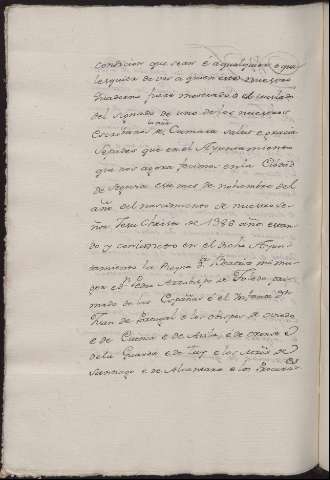 condicion que sean e a qualquier o qua
lesquier de vos a quien este nuestro
Quaderno fuere mostrado o el traslado
del signado de uno de los nuestros
Escribanos de Camara salud e gracia
Sepades que en el Ayuntamiento
que nos agora fecimos en la Ciudad
de Segovia este mes de noviembre del
año del nacimiento de nuestro Se
ñor Jesu Christo de 1386 años estan
do y con nusco en el dicho Ayun
tamiento la Reyna Dª Beatriz mi mu
ger e Dn Pedro Arzobispo de Toledo pri
mado de las Españas e el Infante Dn
Juan de Portugal e los obispos de Oviedo
e de Cuenca e de Avila e de Orense e
de la Guarda e de Tuy e los Mres de
Santiago e de Alcantara e los Procurad